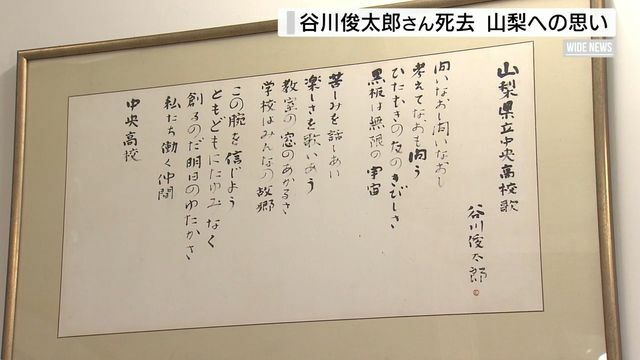 谷川俊太郎さん死去 山梨への思い
WIDE NEWS
山梨県立中央高校歌
谷川俊太郎
問いなおし問いなおし
考えてなおも問う
ひたむきの夜のきびしさ
黒板は無限の宇宙
苦しみを話しあい
楽しさを歌いあう
教室の窓のあかるさ
学校はみんなの故郷
この腕を信じよう
ともどもにたゆみなく
創るのだ明日のゆたかさ
私たち働く仲間
中央高校